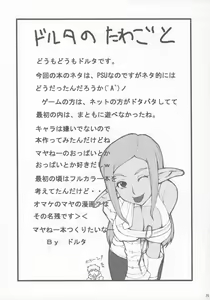 ドルタの たわごと
どうもどうもドルタです。
今回の本のネタは、PSUなのですがネタ的には
どうだったんだろうか(;´Д`)ノ
ゲームの方は、ネットの方がドタバタしてて
最初の内は、まともに遊べなかったねー。
キャラは嫌いでないので
本作ってみたんだけどね
マヤねーのおっぱいとか
おっぱいとか好きだしw
最初の頃はフルカラー本で
考えてたんだけど・・
オマケのマヤの漫画？は
その名残です＞＜
マヤねー本つくりたいな
By ドルタ